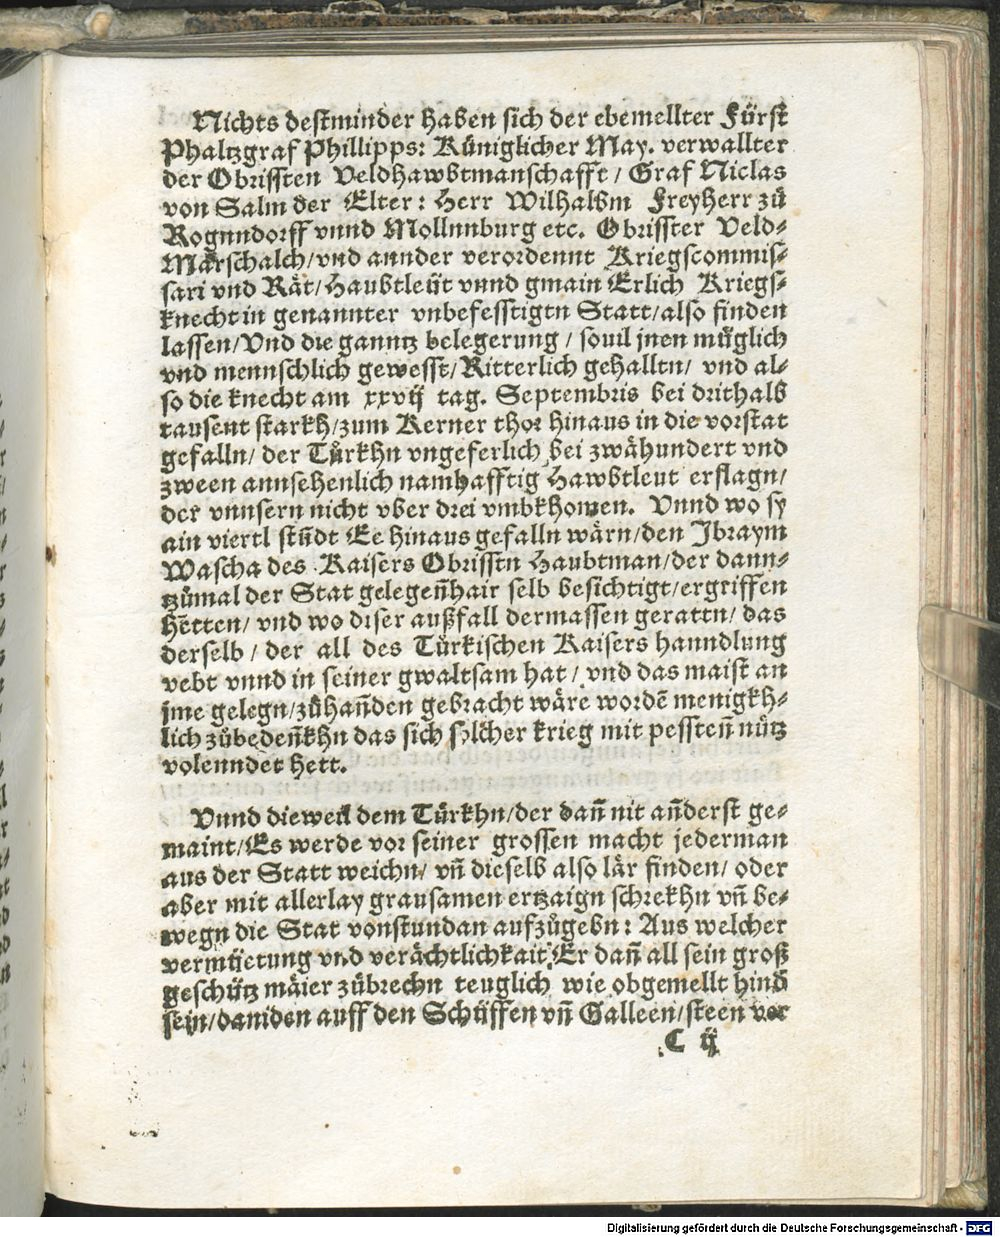 Nichts destminder haben sich der ebemellter Fürst
Phaltzgraf Phillipps: Küniglicher May. verwallter
der Obrissten Veldhawbtmanschafft / Graf Niclas
von Salm der Elter: Herr Wilhalbm Freyherr zů
Rognndorff vnnd Mollnnburg etc. Obrisster Veld-
Marschalch/vnd annder verordennt Kriegscommis-
sari vnd Rät/Haubtleüt vnnd gmain Erlich Kriegs-
knecht in genannter vnbefesstigtn Statt/also finden
lassen/Vnd die ganntz belegerung / souil jnen müglich
vnd mennschlich gewesst/Ritterlich gehalltn/ vnd al-
so die knecht am xxvij tag. Septembris bei drithalb
tausent starkh/zum Kerner thor hinaus in die vorstat
gefalln/ der Türkhn vngeferlich bei zwähundert vnd
zween annsehenlich namhafftig Hawbtleut erslagn/
der vnnsern nicht vber drei vmbkhomen. Vnnd wo sy
ain viertl stñdt Ee hinaus gefalln wärn/den Jbraym
Wascha des Kaisers Obrisstn Haubtman/der dann-
tzůmal der Stat gelegeñhair selb besichtigt/ergriffen
hetten/ vnd wo diser außfall dermassen gerattn/ das
derselb / der all des Türkischen Kaisers hanndlung
vebt vnnd in seiner gwaltsam hat / vnd das maist an
jme gelegn/zůhañden gebracht wäre wordē menigkh-
lich zůbedeñkhn das sich solcher krieg mit pessteñ nůtz
volenndet hett.
Vnnd dieweil dem Türkhn/der dañ nit añderst ge-
maint/Es werde vor seiner grossen macht jederman
aus der Statt weichn/ vñ dieselb also lär finden/ oder
aber mit allerlay grausamen ertzaign schrekhn vñ be-
wegn die Stat vonstundan aufzůgebn: Aus welcher
vermüetung vnd verächtlichkait Er dañ all sein groß
geschütz mäier zůbrechn teuglich wie obgemellt hind
sein/daniden auff den Schüffen vñ Galleen/steen vor
C ij
Digitalisierung gefördert durch die Deutsche Forschungsgemeinschaft - DFG